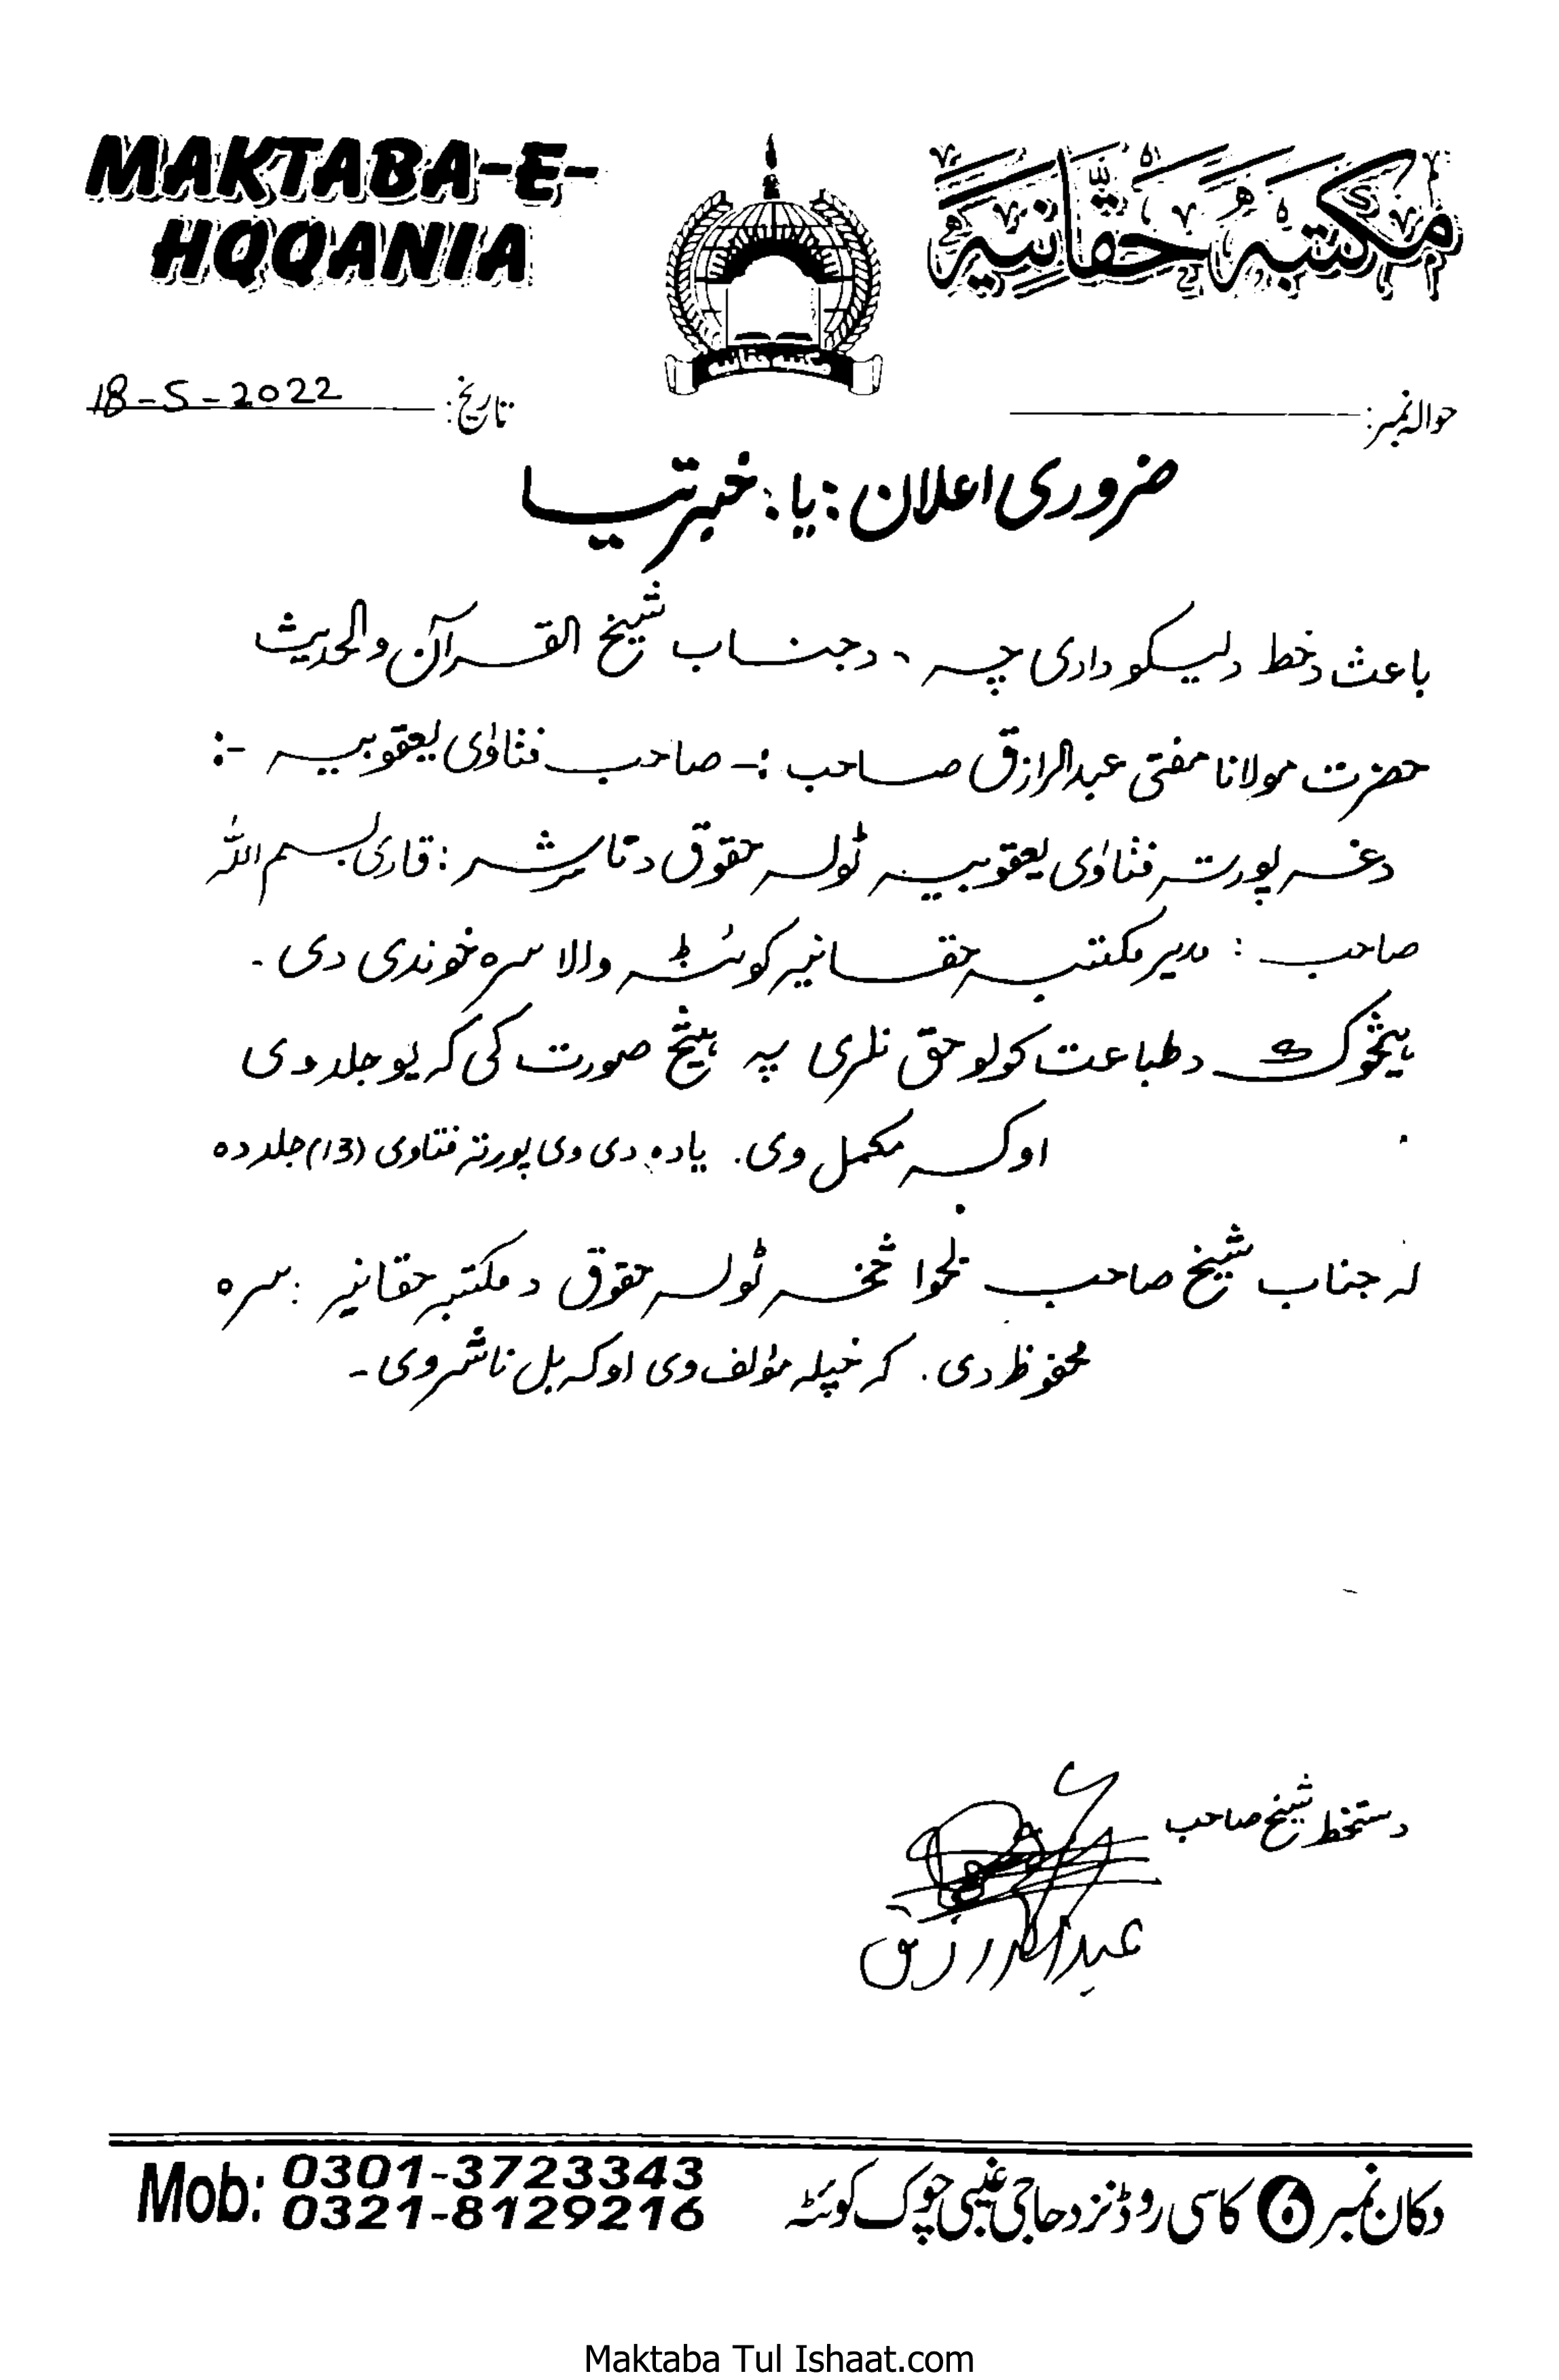 MAKTABA-E-
HQQANIA
مکتبہ حقانیہ
مکتبہ حقانیہ
تاریخ: 18-5-2022
حوالہ نمبر:
ضروری اعلان :یا: خبرتیا
باعث دخط دلیکو دادی چہ ، دجناب شیخ القرآن والحدیث
حضرت مولانا مفتی عبدالرازق صاحب :- صاحب فتاوٰی یعقوبیہ -:
دغہ پورتہ فتاوٰی یعقوبیہ ٹولہ حقوق دناشر : قاری بسم اللہ
صاحب : مدیر مکتبہ حقانیہ کوئٹہ والا سرہ خوندی دی ۔
ہیڅوک دطباعت کولو حق نلری پہ ہیڅ صورت کی کہ یو جلد وی
اوکہ مکمل وی. یادہ دی وی پورتہ فتاوی (13) جلد دہ
لہ جناب شیخ صاحب لخوا څخہ ٹولہ حقوق د مکتبہ حقانیہ : سرہ
محفوظ دی. کہ خپلہ مؤلف وی اوکہ بل ناشر وی ۔
دستخط شیخ صاحب
عبدالرازق
Mob: 0301-3723343
0321-8129216
دکان نمبر 6 کاسی روڈ نزد حاجی غیبی چوک کوئٹہ
Maktaba Tul Ishaat.com